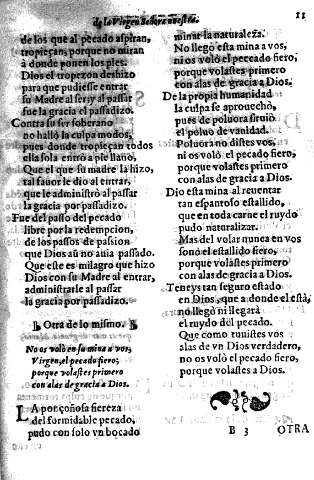 de la Virgen Señora nuestra.
11
de los que al pecado aspiran,
tropieçan, porque no miran
à donde ponen los pies.
Dios el tropezon deshizo
para que pudiesse entrar
su Madre al ser, y al passar
fue la gracia el passadizo.
Contra su ser soberano
no hallò la culpa modos,
pues donde tropieçan todos
ella sola entrò a pie llano,
Que el que su madre la hizo,
tal fauor le dio al entrar,
que le administrò al passar
la gracia por passadizo.
Fue del passo del pecado
libre por la redempcion,
de los passos de passion
que Dios aũ no auia passado.
Que esse es milagro que hizo
Dios con su Madre al entrar,
administrarle al passar
la gracia por passadizo.
Otra de lo mismo.
No os volò en su mina a vos,
Virgen, el pecado fiero,
porque volastes primero
con alas de gracia a Dios.
LA ponçoñosa fiereza
del formidable pecado,
pudo con solo vn bocado
minar la naturaleza.
No llegò esta mina a vos,
ni os volò el pecado fiero,
porque volastes primero
con alas de gracia a Dios.
De la propia humanidad
la culpa se aprouechò,
pues de poluora siruiò
el poluo de vanidad.
Poluora no distes vos,
ni os volò el pecado fiero,
porque volastes primero
con alas de gracia a Dios.
Dio esta mina al reuentar
tan espantoso estallido,
que en toda carne el ruydo
pudo naturalizar.
Mas del volar nunca en vos
sonò el estallido fiero,
porque volastes primero
con alas de gracia a Dios.
Teneys tan seguro estado
en Dios, que a donde el està,
no llegò ni llegarà
el ruydo del pecado.
Que como tuuistes vos
alas de vn Dios verdadero,
no os volò el pecado fiero,
porque volastes a Dios.
B 3 OTRA